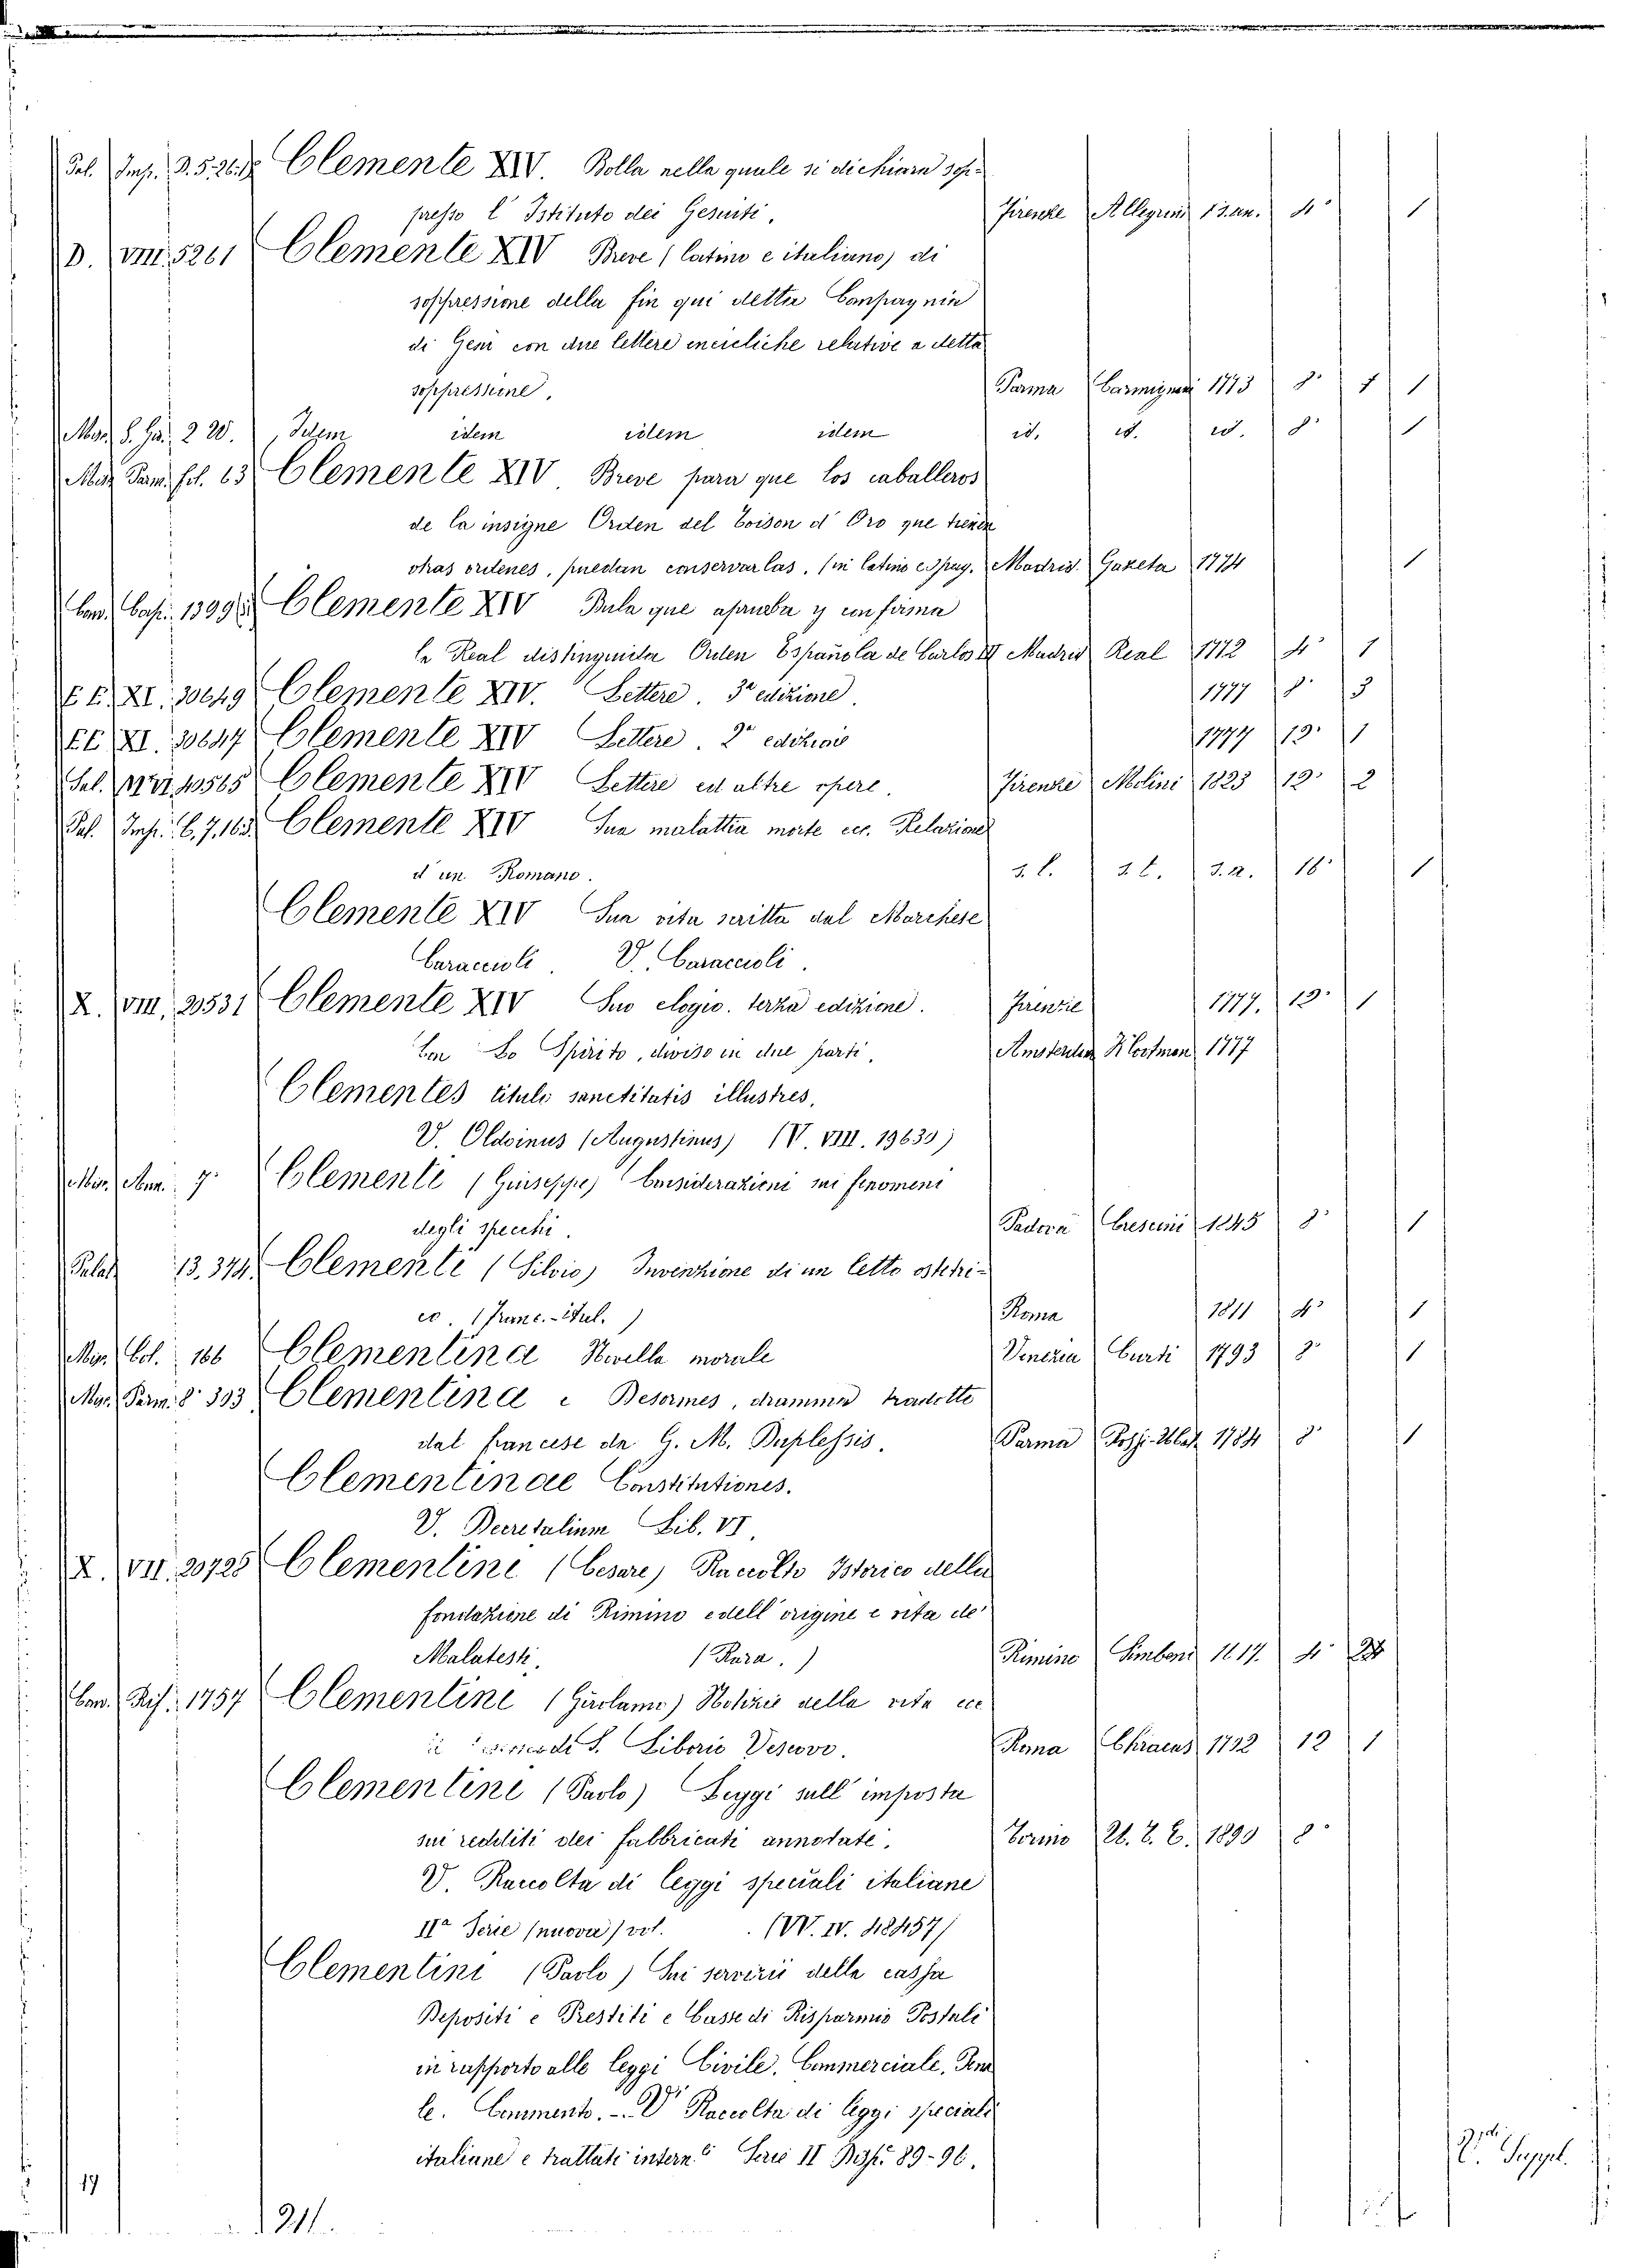 Sal. Imp. D.5.26. Clemente XIV. Bolla nella quale si dichiara sop-
presso l'Istituto dei Gesuiti. Firenze Allegrini s.an. 4° 1
D. VIII. 5261 Clemente XIV Breve (latino e italiano) di
soppressione della fin qui detta Compagnia
di Gesù con due lettere encicliche relative a detta
soppressione. Parma Carmignani 1773 8° 1 1
Mor. S. Ga. 220. Idem idem idem idem id. id. id. 8° 1
Mor. Parm. fol. 63 Clemente XIV Breve para que los caballeros
de la insigne Orden del Toison d'Oro que tienen
otras ordenes, puedan conservarlas. (in latino e spag. Madrid Gazeta 1774 1
Can. Cass. 1399 Clemente XIV Bula que aprueba y confirma
la Real distinguida Orden Española de Carlos III Madrid Real 1772 4° 1
EE. XI. 30649 Clemente XIV. Lettere. 3ª edizione. 1777 8° 3
EE XI. 30647 Clemente XIV Lettere. 2ª edizione 1777 12° 1
Sal. 40565 Clemente XIV Lettere ed altre opere. Firenze Molini 1823 12° 2
Sal. Imp. C.7.163. Clemente XIV Sua malattia morte ecc. Relazione
d'un Romano. s. l. s. t. s. a. 16° 1
Clemente XIV Sua vita scritta dal Marchese
Caraccioli. V. Caraccioli.
X. VIII. 20531 Clemente XIV Suo elogio. terza edizione. Firenze 1777. 12° 1
Con Lo Spirito, diviso in due parti. Amsterdam 1777
Clementes tituli sanctitatis illustres.
V. Oldoinus (Augustinus) (V. VIII. 19630)
Mis. Ann. 7. Clementi (Giuseppe) Considerazioni sui fenomeni
degli specchi. Padova Crescini 1845 8° 1
Palat 13.374. Clementi (Silvio) Invenzione di un letto ostetri-
co. (Franc.-Ital.) Roma 1811 4° 1
Mis. Col. 166 Clementina Novella morale Venezia Curti 1793 8° 1
Mor. Parm. 8° 393 Clementina e Desormes, dramma tradotto
dal francese da G. M. Duplessis. Parma Rossi-Ubal. 1784 8° 1
Clementinae Constitutiones.
V. Decretalium Lib. VI
X. VII. 20728 Clementini (Cesare) Raccolto Istorico della
fondatione di Rimino e dell'origine e vita de'
Malatesti. (Rara.) Rimino Simbeni 1617. 4°
Can. Rif. 1757 Clementini (Girlamo) Notizie della vita ec
di S. Liborio Vescovo. Roma Chracas 1732 12 1
Clementini (Paolo) Leggi sull'imposta
sui redditi dei fabbricati annotate. Torino U. T. E. 1890 8°
V. Raccolta di leggi speciali italiane
IIª Serie (nuova) vol. . (VV. IV. 48457)
Clementini (Paolo) Sui servizii della cassa
Depositi e Prestiti e Casse di Risparmio Postali
in rapporto alle leggi Civile, Commerciale, Pena
le. Commento. -. V. Raccolta di leggi speciali
italiane e trattati intern. Serie II Disp. 89-96.
V. Suppl.
17
211.